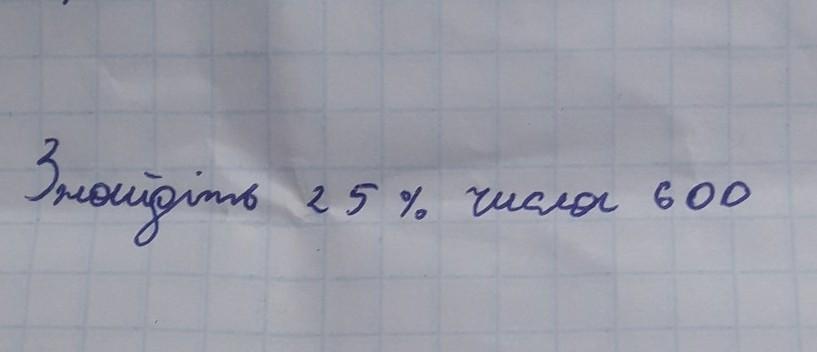 Знайдіть 25 % числа 600